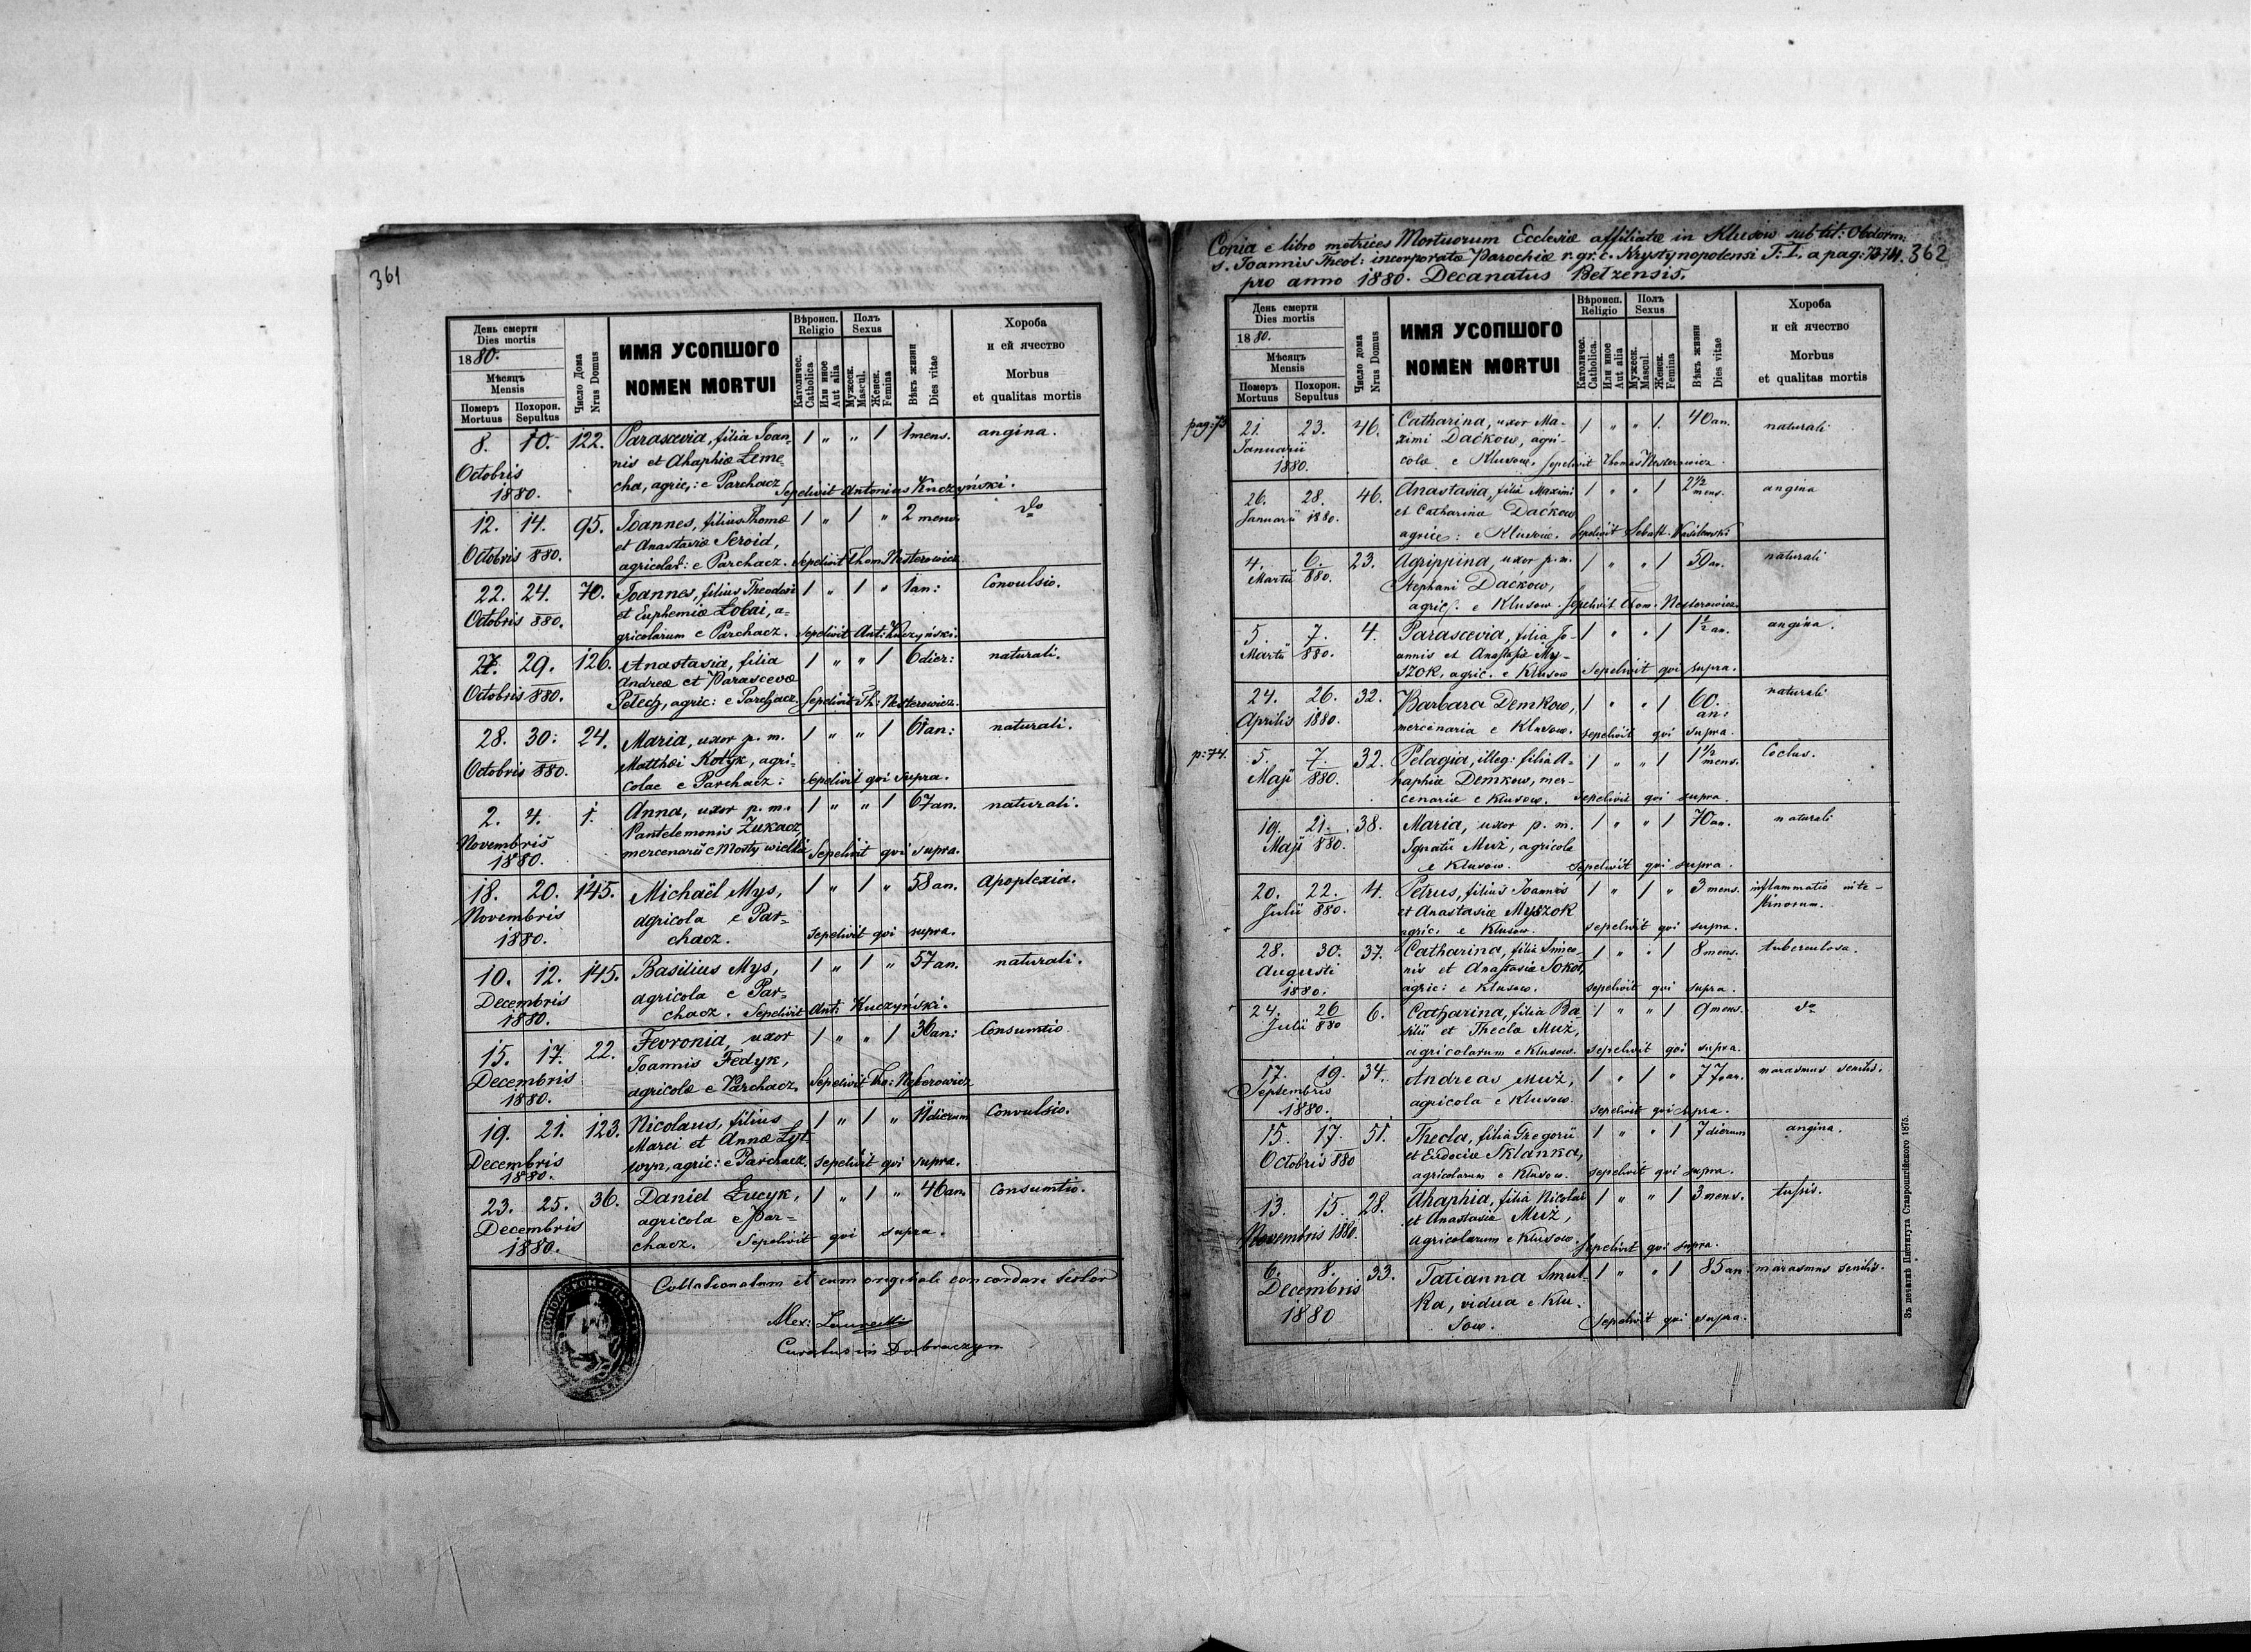 361
День смерти
Dies mortis
1880.
Мѣсяцъ
Mensis
Померъ Mortuus
Похорон. Sepultus
Число Дома
Nrus Domus
ИМЯ УСОПШОГО
NOMEN MORTUI
Вѣроисп.
Religio
Католичес.
Catholica
Или иное
Aut alia
Полъ
Sexus
Мужеск.
Mascul.
Женск.
Femina
Вѣкъ жизни
Dies vitae
Хороба
и ей ячество
Morbus
et qualitas mortis
8. 10. 122. Parascevia, filia Joan- 1 " " 1 1 mens. angina.
Octobris nis et Ahaphiæ Łeme-
1880. cha, agric.: e Parchacz Sepelivit Antonius Kuczyński.
12. 14. 95. Joannes, filius Thomæ 1 " 1 " 2 mens. do
et Anastasiæ Seroid,
Octobris 880. agricolar: e Parchacz. Sepelivit Thom Nesterowicz.
22. 24. 70. Joannes, filius Theodosi 1 " 1 " 1 an: Convulsio.
Octobris 880. et Euphemiæ Łobai, a-
gricolarum e Parchacz. Sepelivit Ant: Kuczyński.
27. 29. 126. Anastasia, filia 1 " " 1 6 dier: naturali.
Andreæ et Parascevæ
Octobris 880. Pelech, agric: e Parchacz. Sepelivit Th: Nesterowicz.
28. 30: 24. Maria, uxor p. m. 1 " " 1 61 an: naturali.
Octobris 880. Matthæi Kotyk, agri-
colae e Parchacz: Sepelivit qui supra.
2. 4. 1. Anna, uxor p. m. 1 " " 1 67 an. naturali.
Novembris Pantelemonis Żukacz,
1880. mercenarii e Mosty wielkie Sepelivit qui supra.
18. 20. 145. Michaël Mys, 1 " 1 " 58 an. Apoplexia.
Novembris agricola e Par-
1880. chacz. Sepelivit qui supra.
10. 12. 145. Basilius Mys, 1 " 1 " 57 an. naturali.
Decembris agricola e Par-
1880. chacz. Sepelivit Ant: Kuczyński.
15. 17. 22. Fevronia, uxor 1 " " 1 36 an: Consumtio
Decembris Joannis Fedyk,
1880. agricolæ e Parchacz. Sepelivit Tho:
19. 21. 123. Nicolaus, filius 1 " 1 " 11 dierum Convulsio.
Decembris Marci et Annæ Łyt-
1880. wyn, agric: e Parchacz. Sepelivit qui supra.
23. 25. 36. Daniel Łucyk, 1 " 1 " 46 an. Consumtio.
Decembris agricola e Par-
1880. chacz. Sepelivit qui supra.
Collationatum et cum originali concordare testor
Alex:
Curatus in Dobraczyn
Copia e libro metrices Mortuorum Ecclesiæ affiliatæ in Klusow sub tit: Obdorm:
s. Joannis Theol: incorporatæ Parochiæ r. gr. c. Krystynopolensi T. I. a pag: 73-74. 362
pro anno 1880. Decanatus Belzensis.
День смерти
Dies mortis
1880.
Мѣсяцъ
Mensis
Померъ Mortuus
Похорон. Sepultus
Число дома
Nrus Domus
ИМЯ УСОПШОГО
NOMEN MORTUI
Вѣроисп.
Religio
Католичес.
Catholica.
Или иное
Aut alia
Полъ
Sexus
Мужеск.
Mascul.
Женск.
Femina
Вѣкъ жизни
Dies vitae
Хороба
и ей ячество
Morbus
et qualitas mortis
pag: 73 21. 23. 46. Catharina, uxor Ma- 1 " " 1. 40 an. naturali
Januarii ximi Daćkow, agri-
1880. colæ e Klusow. Sepelivit Thomas Nesterowicz.
26. 28. 46. Anastasia, filia Maximi 1 " " 1 2 1/2 mens. angina
Januarii 1880. et Catharinæ Daćkow
agric: e Klusow. Sepelivit Sebast. Wasilewski
4. 6. 23. Agrippina, uxor p. m. 1 " " 1 50 an. naturali
Martii 880. Stephani Daćkow,
agric. e Klusow. Sepelivit Thom. Nesterowicz.
5. 7. 4. Parascevia, filia Jo- 1 " " 1 1 1/2 an. angina.
Martii 880. annis et Anastasiæ My-
szok, agric. e Klusow Sepelivit qui supra.
24. 26. 32. Barbara Demkow, 1 " " 1 60. an: naturali
Aprilis 1880. mercenaria e Klusow. Sepelivit qui supra.
p: 74. 5. 7. 32. Pelagia, illeg: filia A- 1 " " 1 1 1/2 mens. Coclus.
Maji 880. haphiæ Demkow, mer-
cenariæ e Klusow. Sepelivit qui supra.
19. 21. 38. Maria, uxor p. m. 1 " " 1 70 an. naturali
Maji 880. Ignatii Muż, agricolæ
e Klusow. Sepelivit qui supra.
20. 22. 4. Petrus, filius Joannis 1 " 1 " 3 mens. inflammatio inte-
Julii 880. et Anastasiæ Myszok stinorum.
agric. e Klusow. Sepelivit qui supra.
28. 30. 37. Catharina, filia Simeo- 1 " " 1 8 mens. tuberculosa.
Augusti nis et Anastasiæ Sokoł,
1880. agric: e Klusow. Sepelivit qui supra.
24. 26 6. Catharina, filia Ba- 1 " " 1 9 mens. do
Julii 880 silii et Theclæ Muż,
agricolarum e Klusow. Sepelivit qui supra.
17. 19. 34. Andreas Muż, 1 " 1 " 77 an. marasmus senilis.
Septembris agricola e Klusow.
1880. Sepelivit qui supra.
15. 17. 51. Thecla, filia Gregorii 1 " " 1 7 dierum angina.
Octobris 880 et Eudociæ Sklanka,
agricolarum e Klusow. Sepelivit qui supra.
13. 15. 28. Ahaphia, filia Nicolai 1 " " 1 3 mens. tussis.
et Anastasiæ Muż,
Novembris 1880. agricolarum e Klusow. Sepelivit qui supra.
6. 8. 33. Tatianna Smul- 1 " " 1 85 an. marasmus senilis.
Decembris ka, vidua e Klu-
1880 sow. Sepelivit qui supra.
Зъ печатнѣ Института Ставропигійского 1875.